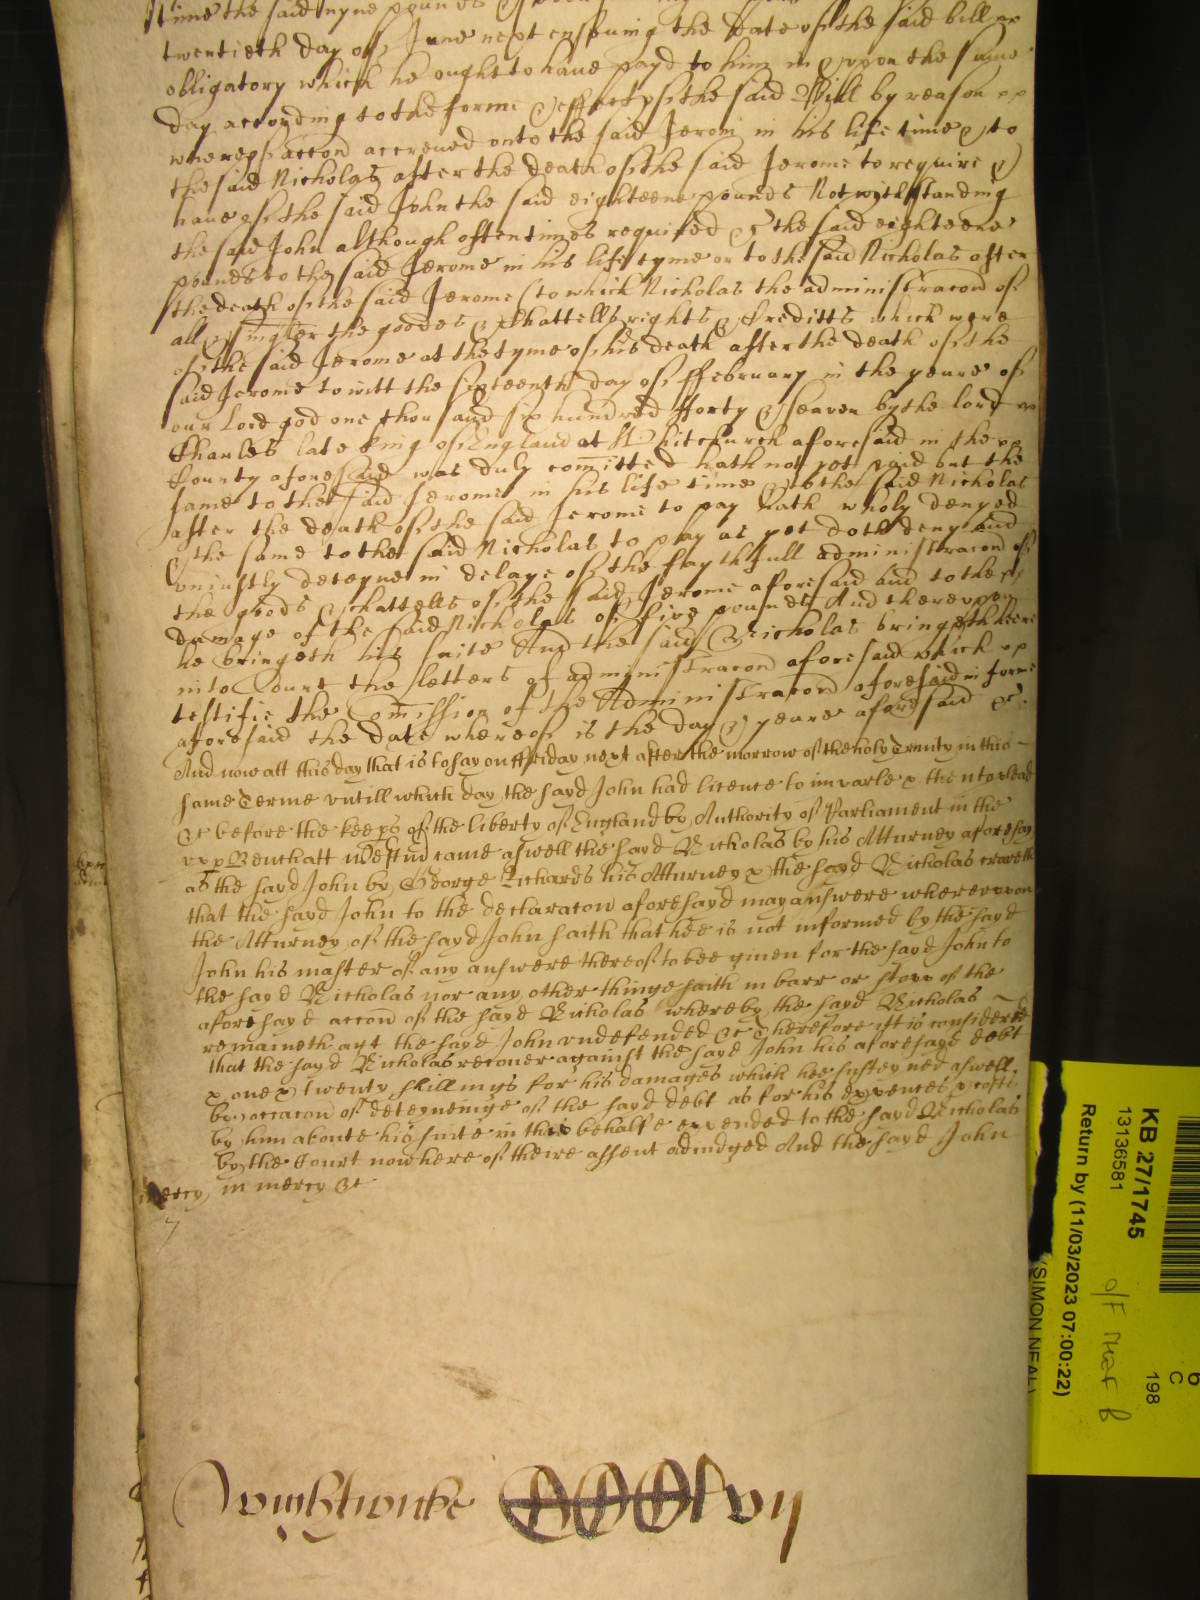 time the said nyne pounds
twentieth day of June next ensuing the date of the said bill
obligatory which he ought to haue payd to him in & vppon the same
day according to the forme & effect of the said Bill by reason
whereof accon accrewed onto the said Jerom in his life time & to
the said Nicholas after the death of the said Jerome to require &
haue of the said John the said eighteene pounds Notwithstanding
the said John although oftentimes required &c the said eighteene
pounds to the said Jerome in his life tyme or to the said Nicholas after
the death of the said Jerome (to which Nicholas the administracon of
all & singler the goodes & Chattells rights & Creditts which were
of the said Jerome at the tyme of his death after the death of the
said Jerome to witt the sixteenth day of ffebruary in the yeare of
our Lord god one thousand six hundred fforty & seaven by the lord
Charles late king of England at Whitchurch aforesaid in the
County aforesaid was duly comitted hath not yet paid but the
same to the said Jerome in his life time & to the said Nicholas
after the death of the said Jerome to pay hath wholy denyed
& the same to the said Nicholas to pay as yet doth deny and
vniustly deteyne in delaye of the faythfull administracon of
the goods & chattells of the said Jerome aforesaid and to the
damage of the said Nicholas of five pounds And therevpon
he bringeth his suite And the said Nicholas bringeth heere
into Court the letters of administracon aforesaid which
testifie the Comission of the Administracon aforesaid in forme
aforesaid the date whereof is the day & yeare aforesaid &c.
And now att this day that is to say on ffriday next after the morrow of the holy Trenity in this
same Terme vntill which day the sayd John had licence to imparle & then to plead
&c before the keeps of the liberty of England by Authority of Parliament in the
vpp Bench att Westm came aswell the sayd Nicholas by his Atturney aforesayd
as the sayd John by George Richards his Atturney & the sayd Nicholas craveth
that the sayd John to the declaracon aforesayd may answere wherevppon
the Atturney of the sayd John saith that hee is not informed by the sayd
John his master of any answere thereof to bee given for the sayd John to
the sayd Nicholas nor any other thinge saith in barr or stopp of the
aforesayd accon of the sayd Nicholas whereby the sayd Nicholas
remaineth agt the sayd John vndefended &c Therefore itt is considered
that the sayd Nicholas recouer against the sayd John his aforesayd debt
& one & twenty shillings for his damages which hee susteyned aswell
by occacon of deteyneinge of the sayd debt as for his expences & costs
by him aboute his suite in this behalfe expended to the sayd Nicholas
by the Court now here of theire assent adiudged And the sayd John
mercy in mercy &c
KB 27/1745
13136581
198
Return by (11/03/2023 07:00:22)
(SIMON NEAL)
6
C